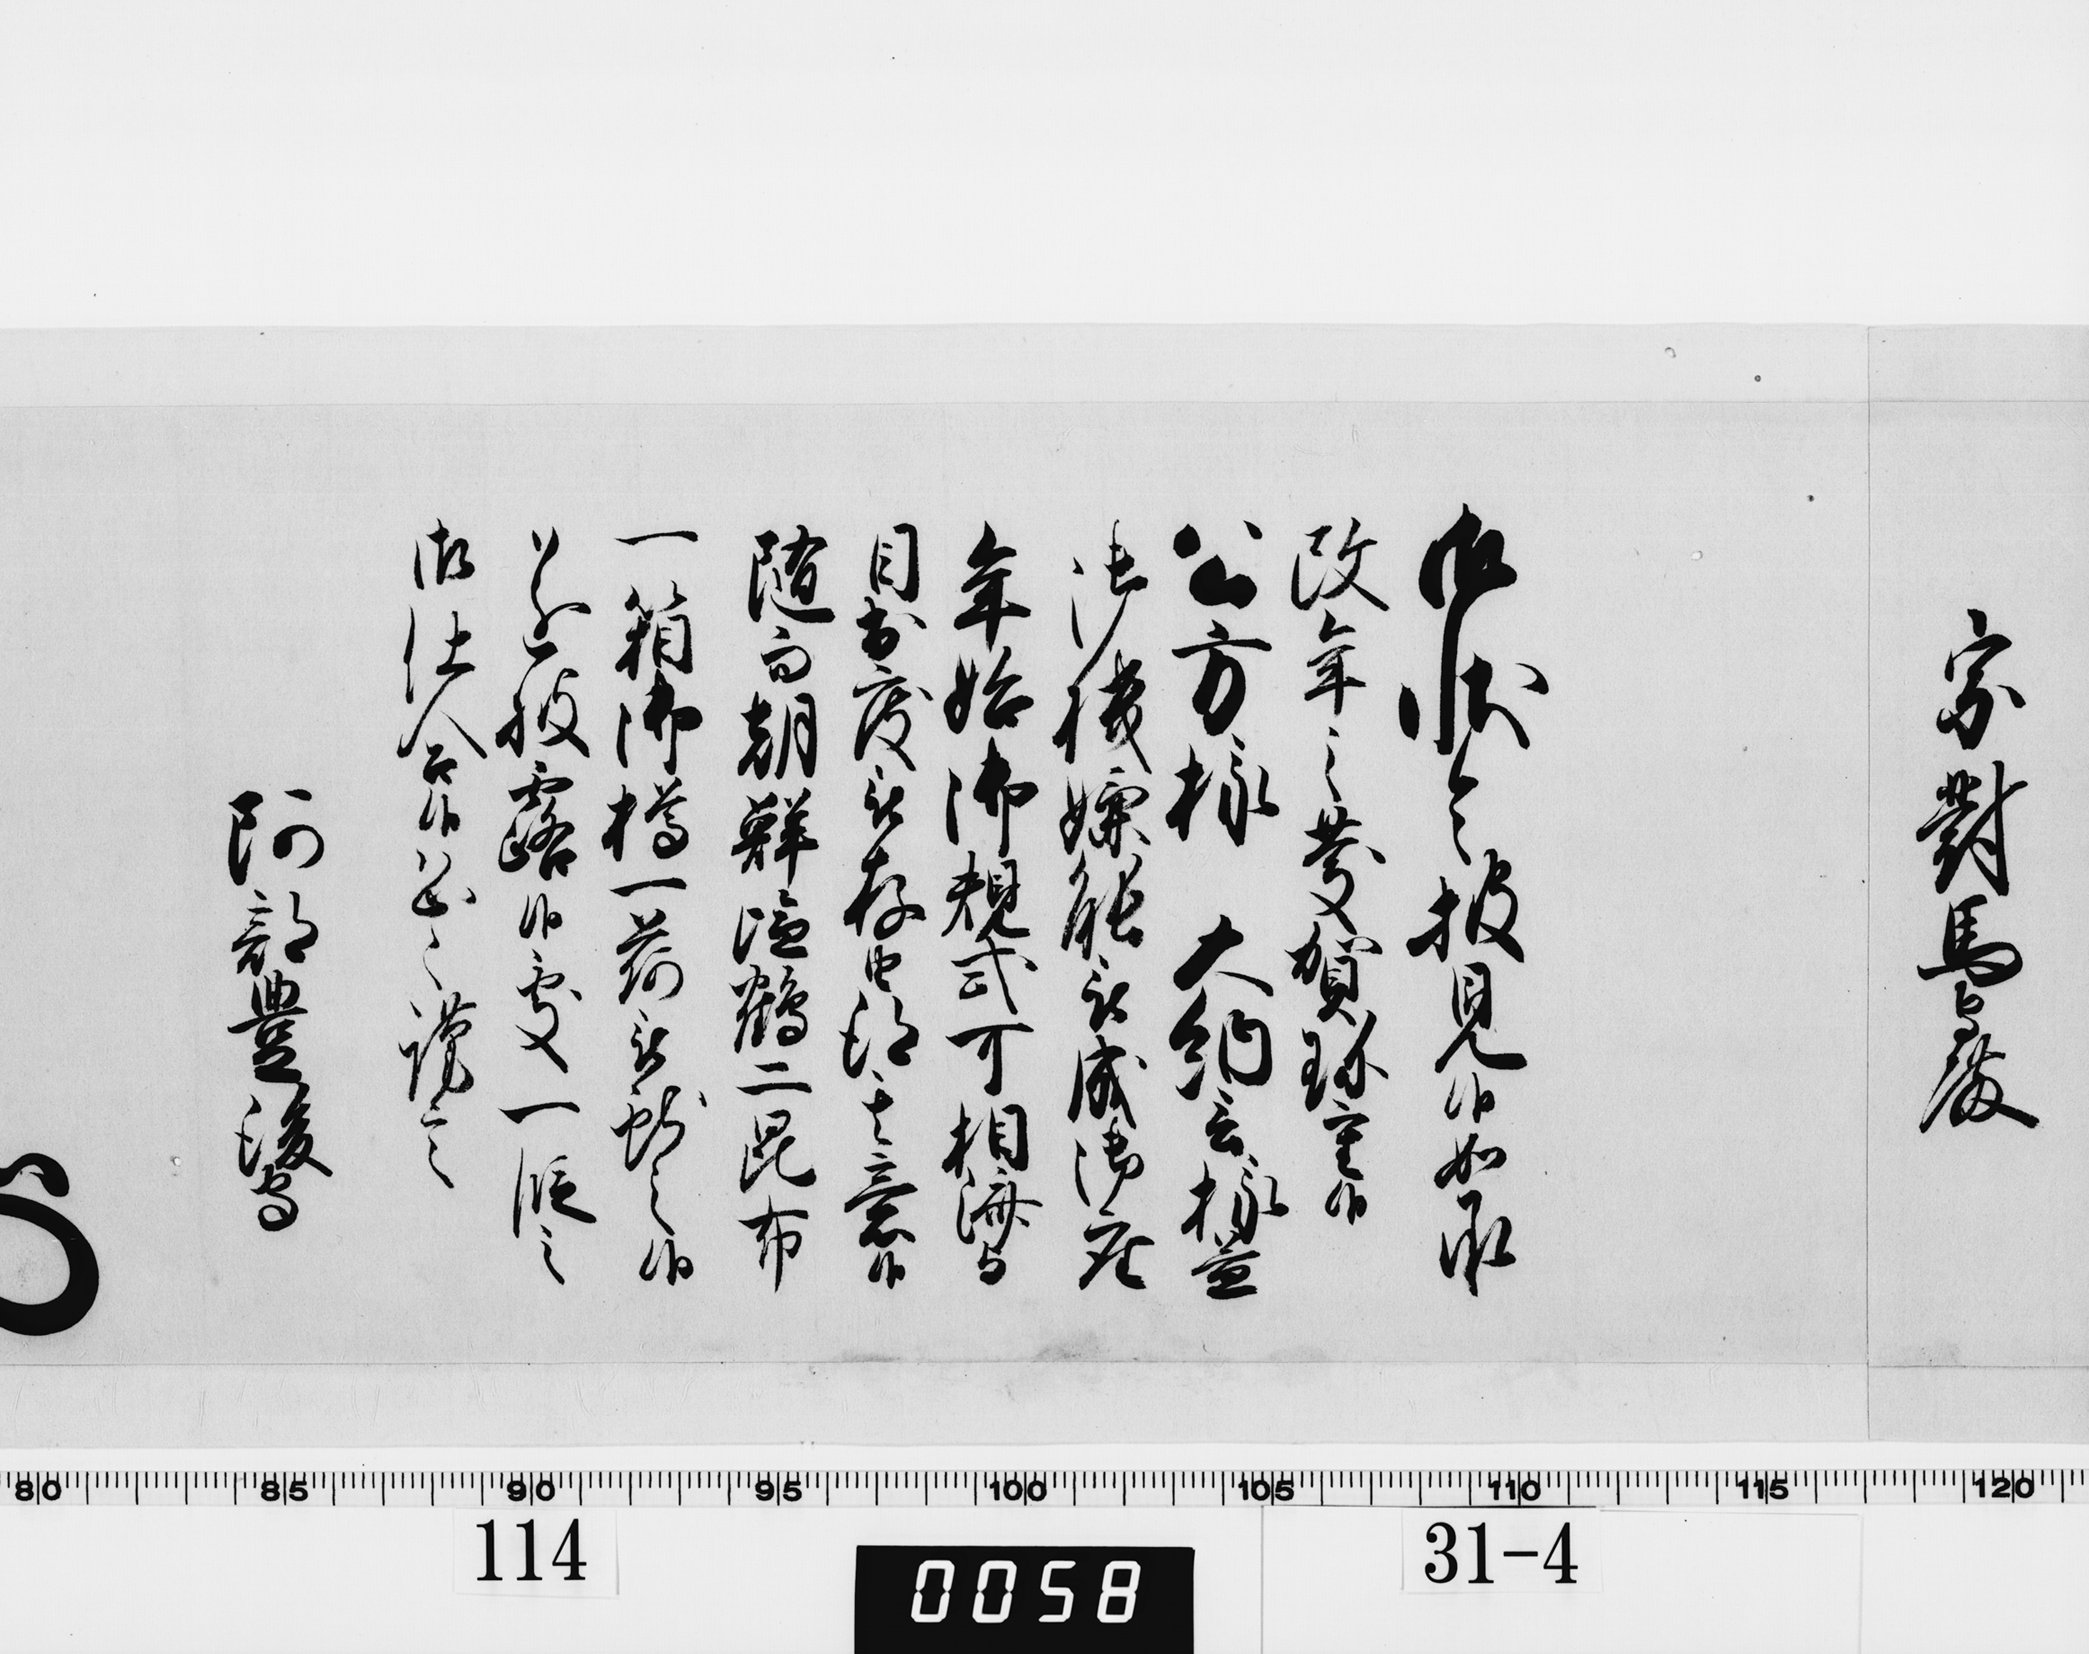 宗對馬守殿
御状令披見候如承
改年之慶賀珎重候
公方様　大納言様益
御機嫌能被成御座
年始御規式可相済与
目出度被存由得其意候
随而朝鮮塩鶴二昆布
一箱御樽一荷被獻之候
遂披露候處一段之
御仕合候恐々謹言
阿部豊後守
80 85 90 95 100 105 110 115 120
114
0058
31-4